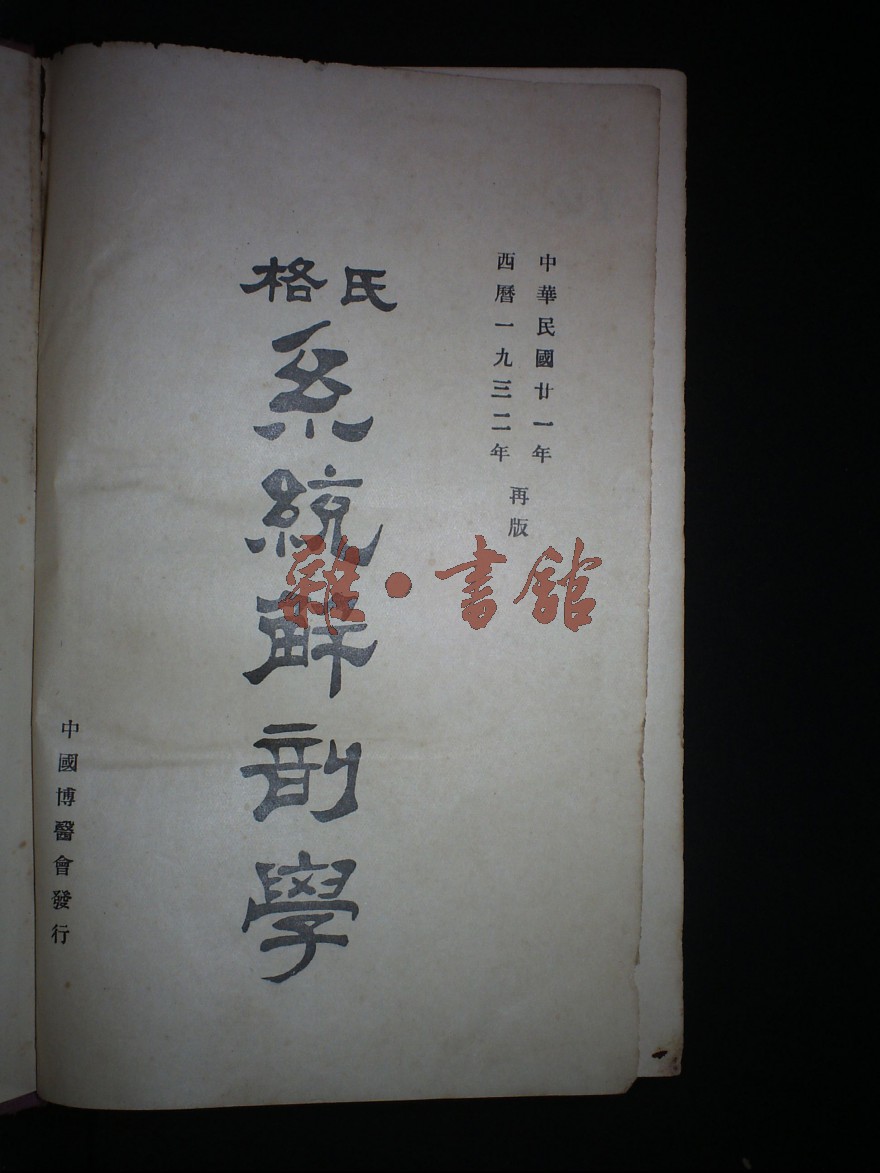 中華民國廿一年
西曆一九三二年
再版
格氏
系統解剖學
中國博醫會發行
雜·書館